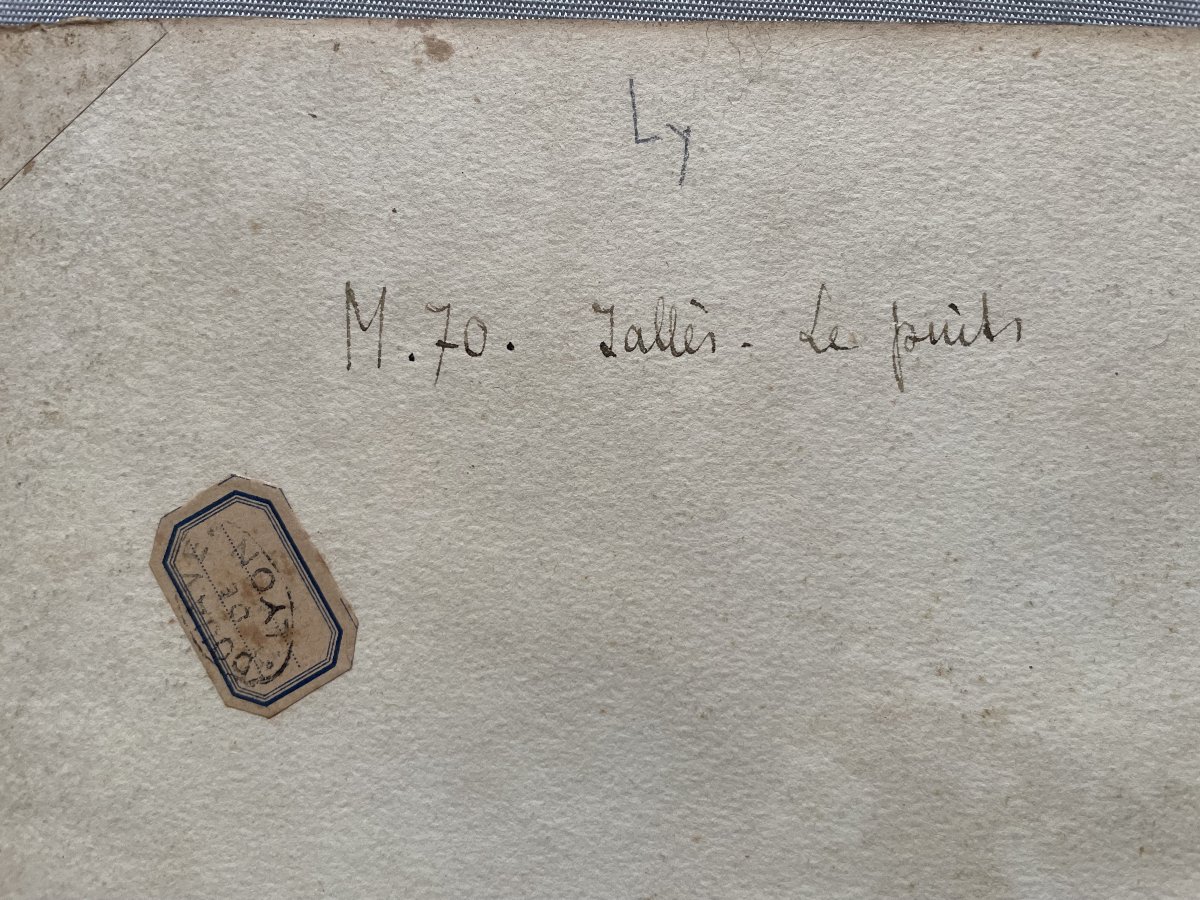 Ly
M. 70. Jallès - Le puits
DOUANE
DE
LYON